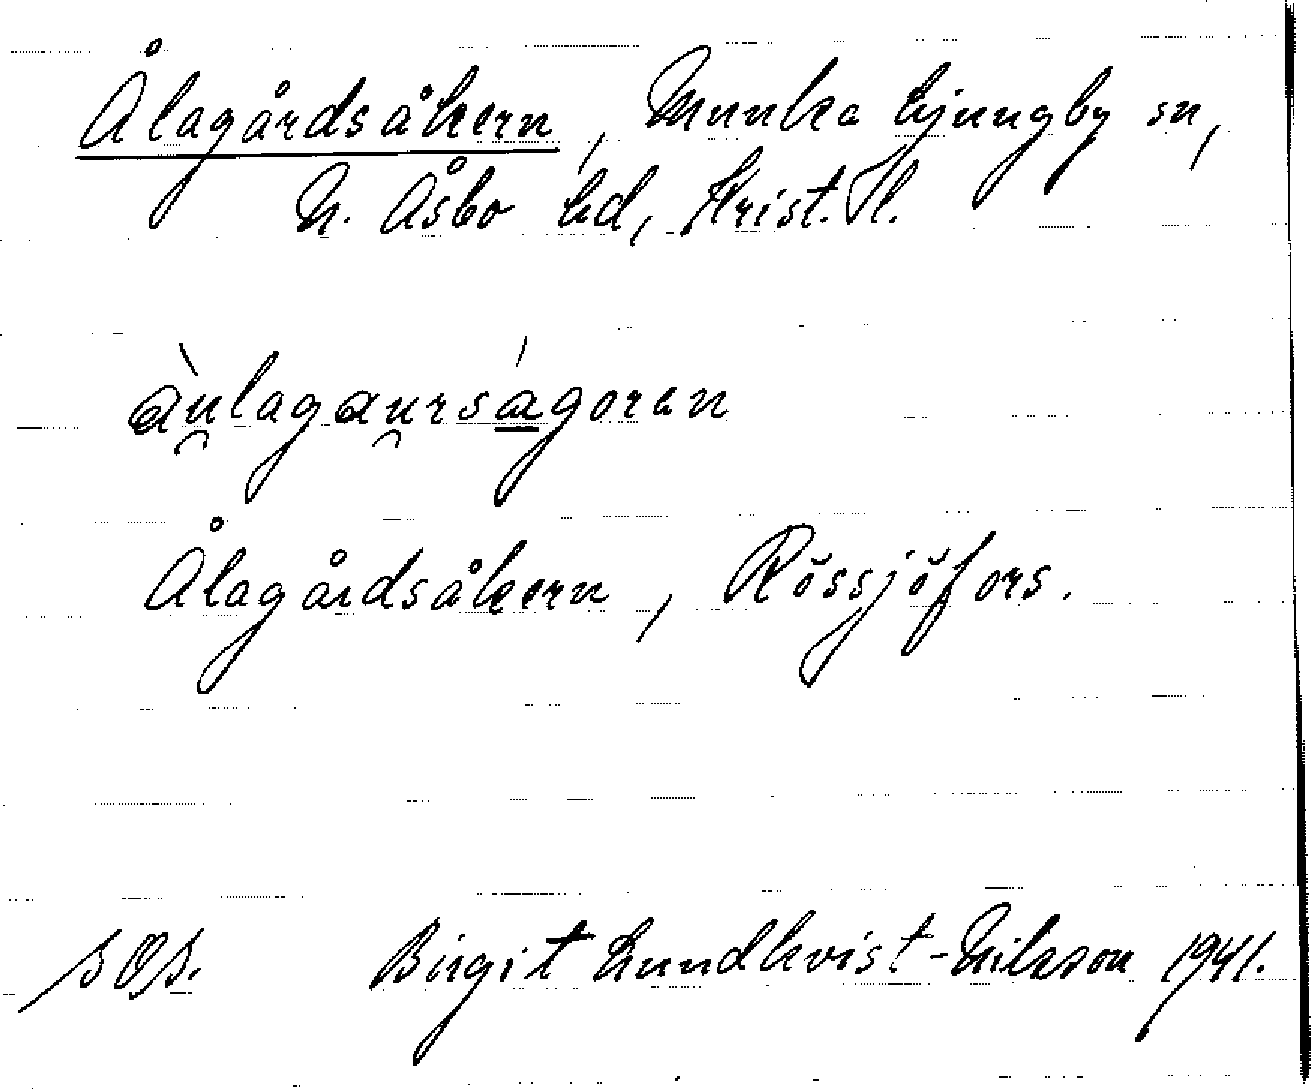 Ålagårdsåkern, Munka Ljungby sn,
N. Åsbo hd, Krist. H.
àu̯lagau̯rságoren
Ålagårdsåkern, Rössjöfors.
SOS. Birgit Lundkvist-Nilsson 1941.